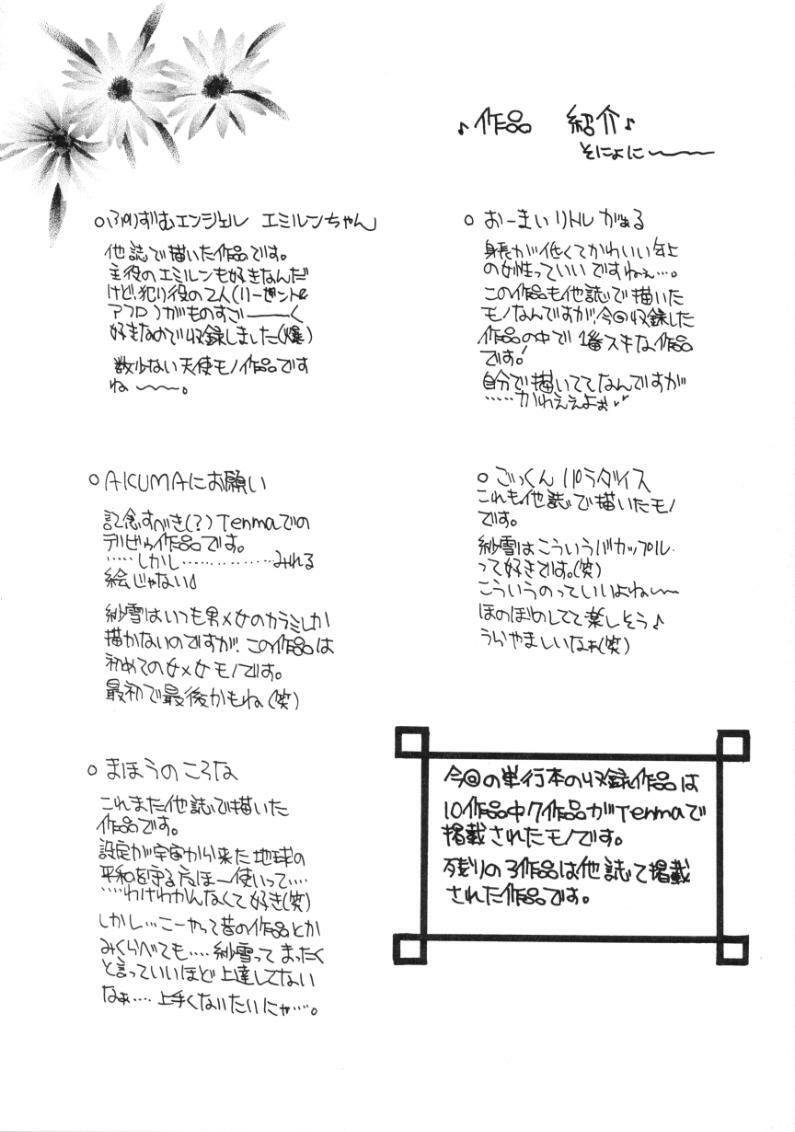 ♪作品 紹介♪
そにょに〜〜
○ぷりずむエンジェル エミルンちゃん
他誌で描いた作品です。
主役のエミルンも好きなんだ
けど、犯り役の2人(リーゼントと
アフロ)がものすごーーく
好きなので収録しました(爆)
数少ない天使モノ作品です
ね〜〜。
○AKUMAにお願い
記念すべき(?)Tenmaでの
デビュウ作品です。
……しかし……………みれる
絵じゃない
紗雪はいつも男×女のカラミしか
描かないのですが、この作品は
初めての女×女モノです。
最初で最後かもね(笑)
○まほうのころな
これまた他誌で描いた
作品です。
設定が宇宙から来た地球の
平和を守る魔ほー使いって……
……わけわかんなくて好き(笑)
しかし…こーやって昔の作品とか
みくらべても……紗雪ってまったく
と言っていいほど上達してない
なぁ……上手くないたいにゃ……。
○おーまいリトルがぁる
身長が低くてかわいい年上
の女性っていいですねぇ…。
この作品も他誌で描いた
モノなんですが、今回収録した
作品の中で1番スキな作品
です!
自分で描いててなんですが
……かわええよぉ
○ごっくんパラダイス
これも他誌で描いたモノ
です。
紗雪はこういうバカップル
って好きです。(笑)
こういうのっていいよね〜
ほのぼのしてて楽しそう♪
うらやましいなぁ(笑)
今回の単行本の収録作品は
10作品中7作品がTenmaで
掲載されたモノです。
残りの3作品は他誌で掲載
された作品です。